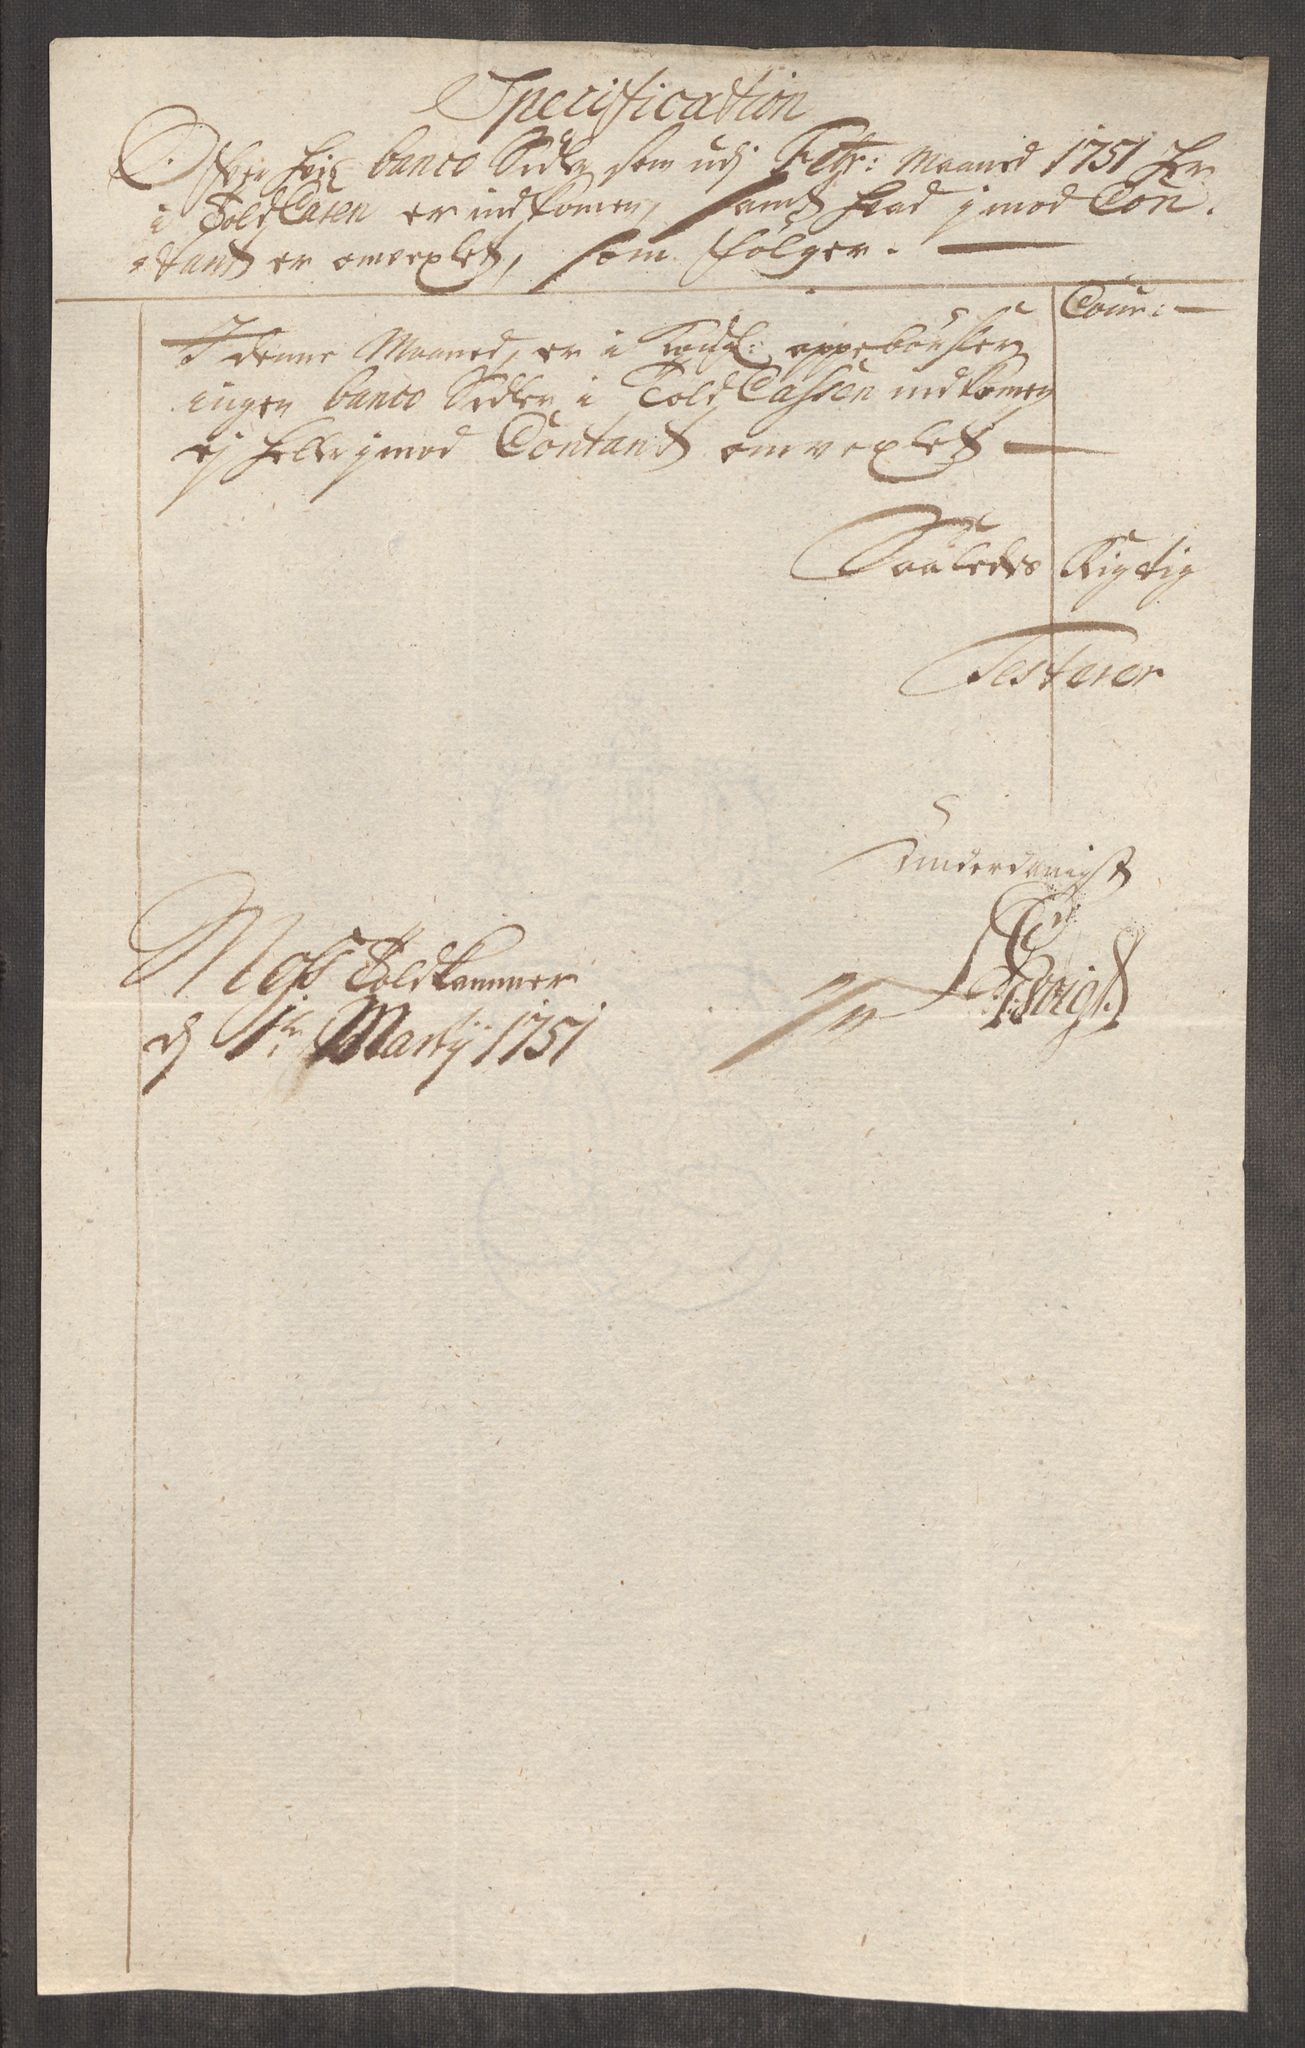 Specification
Over hvis banco Sedler som udj Febr: Maaned 1751 her
i Told Casen er indkomen, samt hvad jmod Con-
-tant er omvexlet, som følger.
Cour:
I denne Maaned, er i Kongl: oppebørsler
ingen banco Sedler i Told Cassen indkomen
ej heller jmod Contant omvexlet
Saaledes Rigtig
Testerer
Underdanigst
Moss Toldkammer
d 1te Martij 1751
Voigt